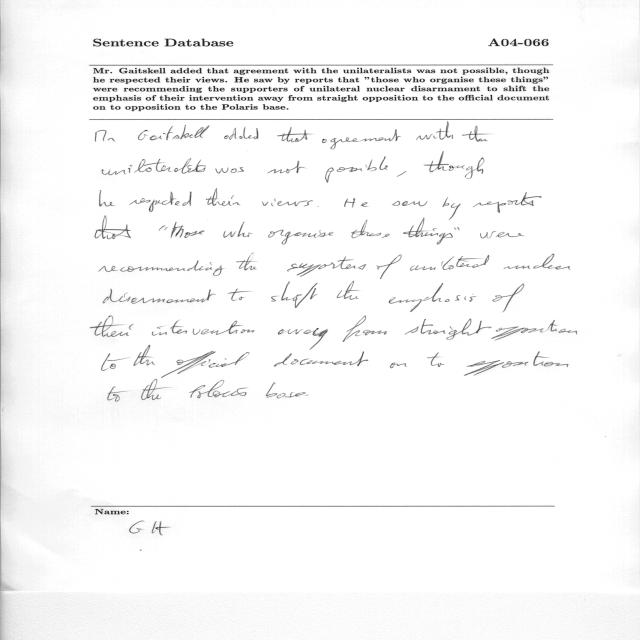 Sentence Database A04-066
Mr. Gaitskell added that agreement with the unilateralists was not possible, though
he respected their views. He saw by reports that "those who organise these things"
were recommending the supporters of unilateral nuclear disarmament to shift the
emphasis of their intervention away from straight opposition to the official document
on to opposition to the Polaris base.
Mr Gaitskell added that agreement with the
unilateralists was not possible, though
he respected their views. He saw by reports
that "those who organise these things" were
recommending the supporters of unilateral nuclear
disarmament to shift the emphasis of
their intervention away from straight opposition
to the official document on to opposition
to the Polaris base
Name:
G H